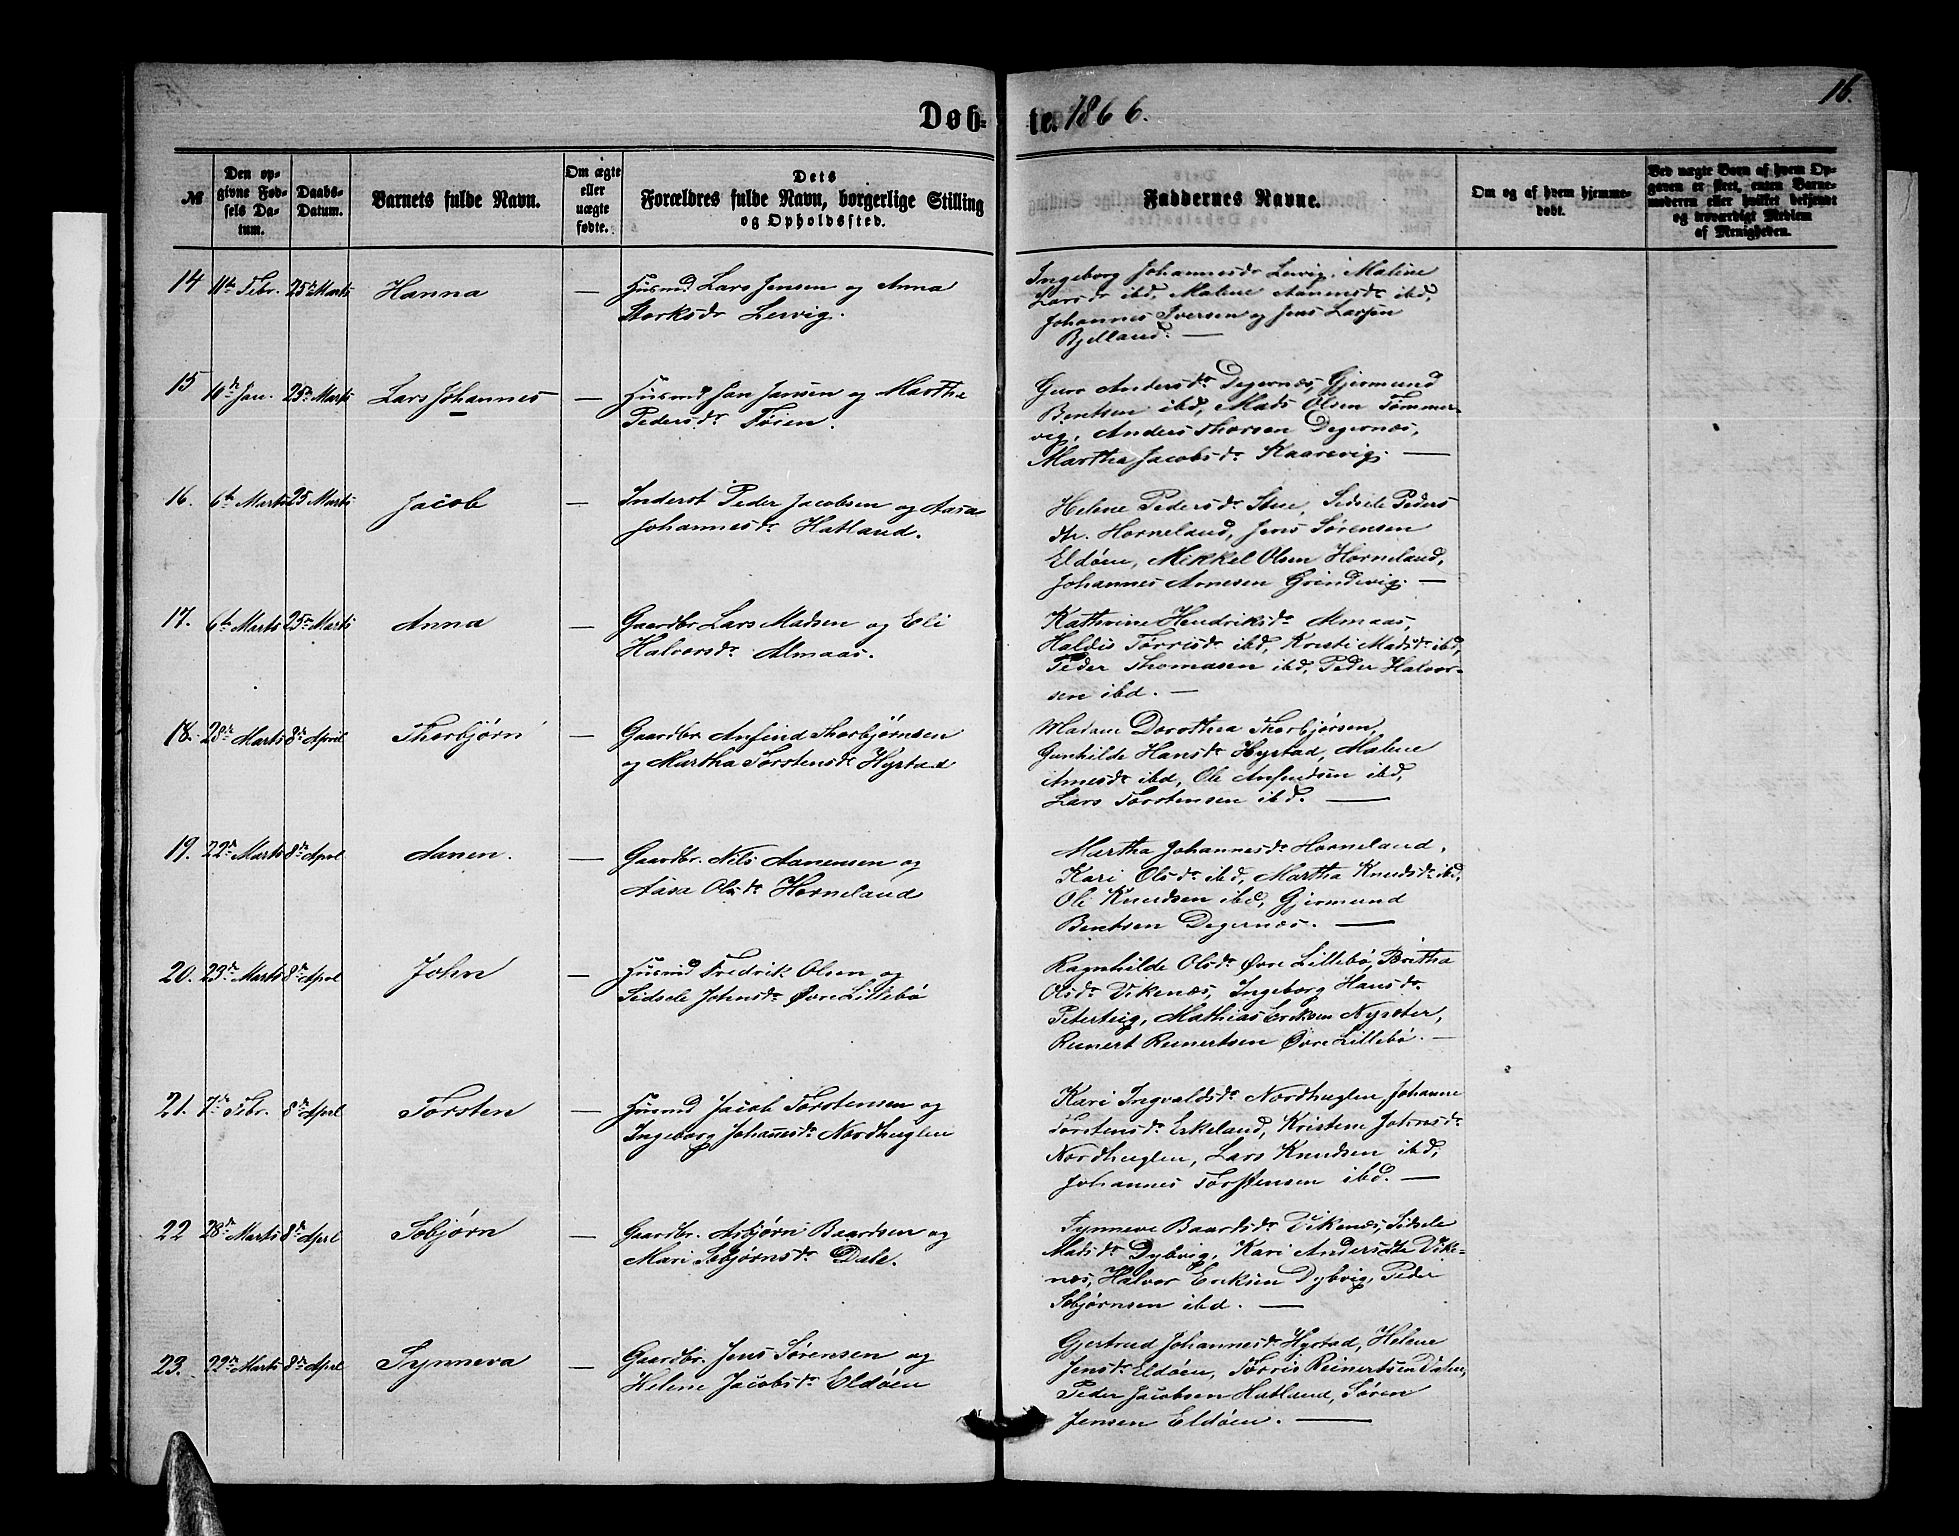 16.
Døbte. 1866.
№
Den opgivne Fødsels Datum.
Daabs-Datum.
Barnets fulde Navn.
Om ægte eller uægte fødte.
Dets Forældres fulde Navn, borgerlige Stilling og Opholdssted.
Faddernes Navne.
Om og af hvem hjemmedøbt.
Ved uægte Børn af hvem Opgaven er skeet, enten Barnemoderen eller hvilket bekjendt og troværdigt Medlem af Menigheden.
14 11te Febr. 25de Marts Hanna —
Husmd Lars Jensen og Anna
Storksdr Lervig.
Ingeborg Johannesdr Lervig, Malene
Larsdr ibd, Malene Aanensdr ibd,
Johannes Iversen og Jens Larsen
Bjelland. —
15 10de Jan. 25de Marts Lars Johannes —
Husmd Jan Jansen og Martha
Pedersdr Føien.
Guro Andersdr Degernæs, Gjermund
Bentsen ibd, Mads Olsen Tømmer-
vig, Anders Thorsen Degernæs,
Martha Jacobsdr Kaarevig. —
16. 6te Marts 25 Marts Jacob —
Inderst Peder Jacobsen og Aasa
Johannesdr Hatland.
Helene Pedersdr Stue, Sidsele Peders
dr. Horneland, Jens Sørensen
Eldøen, Mikkel Olsen Horneland,
Johannes Arnesen Grindevig. —
17. 6te Marts 25de Marts Anna —
Gaardbr Lars Madsen og Eli
Halvorsdr Almaas.
Kathrine Hendriksdr Almaas,
Haldis Tørrisdr ibd, Kristi Madsdr ibd,
Peder Thomasen ibd, Peder Halvor-
sen ibd. —
18. 28de Marts 8de April Thorbjørn —
Gaardbr Anfind Thorbjørnsen
og Martha Torstensdr Hystad
Madam Dorothea Thorbjørsen,
Gunhilde Hansdr Hystad, Malene
Arnesdr ibd, Ole Anfindsen ibd,
Lars Torstensen ibd. —
19. 22de Marts 8de Aprl Aanen. —
Gaardbr. Nils Aanensen og
Aasa Olsdr Horneland
Martha Johannesdr Horneland,
Kari Olsdr ibd, Martha Knudsdr ibd,
Ole Knudsen ibd, Gjermund
Bentsen Degernæs. —
20. 23de Marts 8de Aprl John —
Husmd Fredrik Olsen og
Sidsele Johnsdr Øvre Lillebø
Ragnhilde Olsdr Øvre Lillebø, Britha
Olsdr Vikenæs, Ingeborg Hansdr
Peterteig, Mathias Eriksen Nysæter,
Reinert Reinertsen Øvre Lillebø. —
21. 7de Febr. 8de Aprl Torsten —
Husmd Jacob Torstensen og
Ingeborg Johannesdr Nordhuglen
Kari Ingvaldsdr Nordhuglen, Johanne
Torstensdr Eskeland, Kristene Johnsdr
Nordhuglen, Lars Knudsen ibd,
Johannes Torstensen ibd. —
22 28de Marts 8de Aprl Sebjørn —
Gaardbr. Asbjørn Baardsen og
Mari Sebjørnsdr Dale.
Synneve Baardsdr Vikenæs, Sidsele
Madsdr Dybvig, Kari Andersdtr Vike-
næs, Halvor Eriksen Dybvig, Peder
Sebjørnsen ibd. —
23. 22de Marts 8de Aprl Synneva —
Gaardbr. Jens Sørensen og
Helene Jacobsdr Eldøen
Gjertrud Johannesdr Hystad, Helene
Jensdr Eldøen, Tørris Reinertsen Dalen,
Peder Jacobsen Hatland, Søren
Jensen Eldøen. —